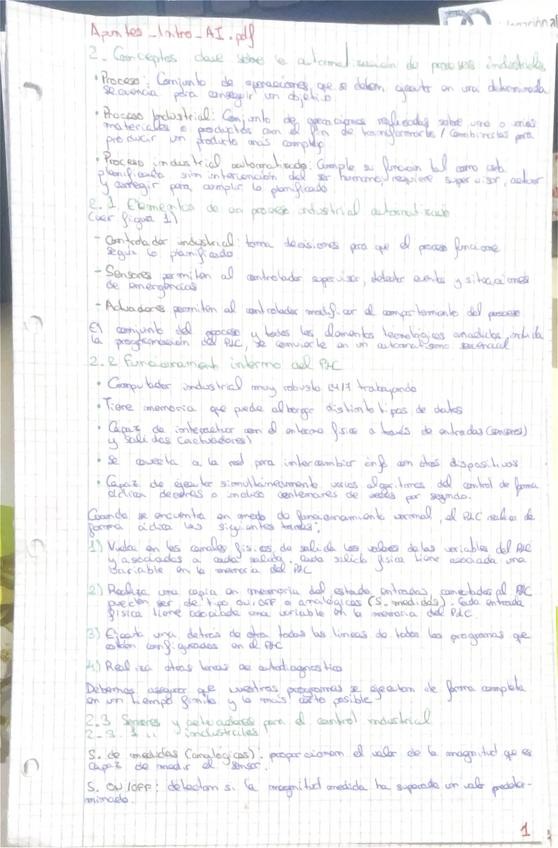 Apuntes_Intro_AI.pdf
2. Conceptos clave sobre la automatización de procesos industriales
• Proceso: Conjunto de operaciones, que se deben ejecutar en una determinada
secuencia para conseguir un objetivo.
• Proceso Industrial: Conjunto de operaciones realizadas sobre uno o más
materiales o productos con el fin de transformarlos / combinarlos para
producir un producto más complejo
• Proceso industrial automatizado: Cumple su función tal como está
planificado sin intervención del ser humano, requiere supervisar, actuar
y corregir para cumplir lo planificado
2.1 Elementos de un proceso industrial automatizado
(ver figura 1)
- Controlador industrial: toma decisiones para que el proceso funcione
según lo planificado
- Sensores permiten al controlador supervisar, detectar eventos y situaciones
de emergencias
- Actuadores permiten al controlador modificar el comportamiento del proceso
El conjunto del proceso y todos los elementos tecnológicos añadidos, incluida
la programación del PLC, se convierte en un automatismo
2.2 Funcionamiento interno del PLC
• Computador industrial muy robusto 24/7 trabajando
• Tiene memoria que puede albergar distintos tipos de datos
• Capaz de interactuar con el entorno físico a través de entradas (sensores)
y salidas (actuadores)
• Se conecta a la red para intercambiar info con otros dispositivos
• Capaz de ejecutar simultáneamente varios algoritmos del control de forma
cíclica decenas o incluso centenares de veces por segundo.
Cuando se encuentra en modo de funcionamiento normal, el PLC realiza de
forma cíclica las siguientes tareas:
1) Vuelca en los canales físicos de salida los valores de las variables del PLC
y asociadas a cada salida. Cada salida física tiene asociada una
variable en la memoria del PLC
2) Realiza una copia en memoria del estado entradas, conectadas al PLC
pueden ser de tipo ON/OFF o analógicas (S. medidas). Cada entrada
física tiene asociada una variable en la memoria del PLC.
3) Ejecuta una detrás de otra todas las líneas de todos los programas que
están configurados en el PLC
4) Realiza otras tareas de autodiagnóstico
Debemos asegurar que nuestros programas se ejecutan de forma completa
en un tiempo finito y lo más corto posible
2.3 Sensores y actuadores para el control industrial
2.3.1 industriales
S. de medidas (analógicos): proporcionan el valor de la magnitud que es
capaz de medir el sensor.
S. ON/OFF: detectan si la magnitud medida ha superado un valor predeter-
minado.
1